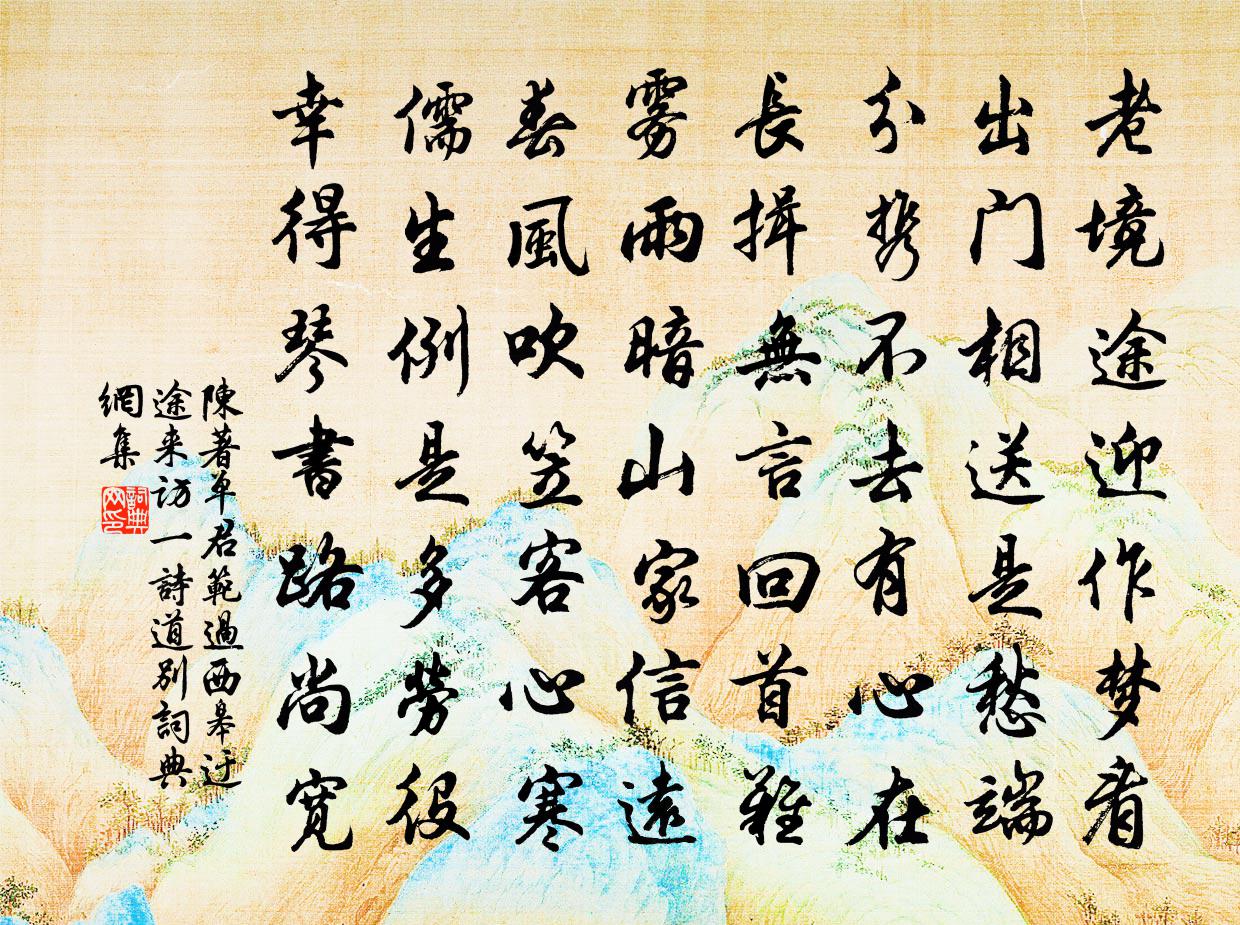 老境途迎作梦看
出门相送是愁端
分携不去有心在
長揖無言回首難
雾雨暗山家信遠
春風吹笠客心寒
儒生例是多勞役
幸得琴書路尚宽
陳著卓君範過西皋迂
途来访一詩道別詞典
網集
詞典網印